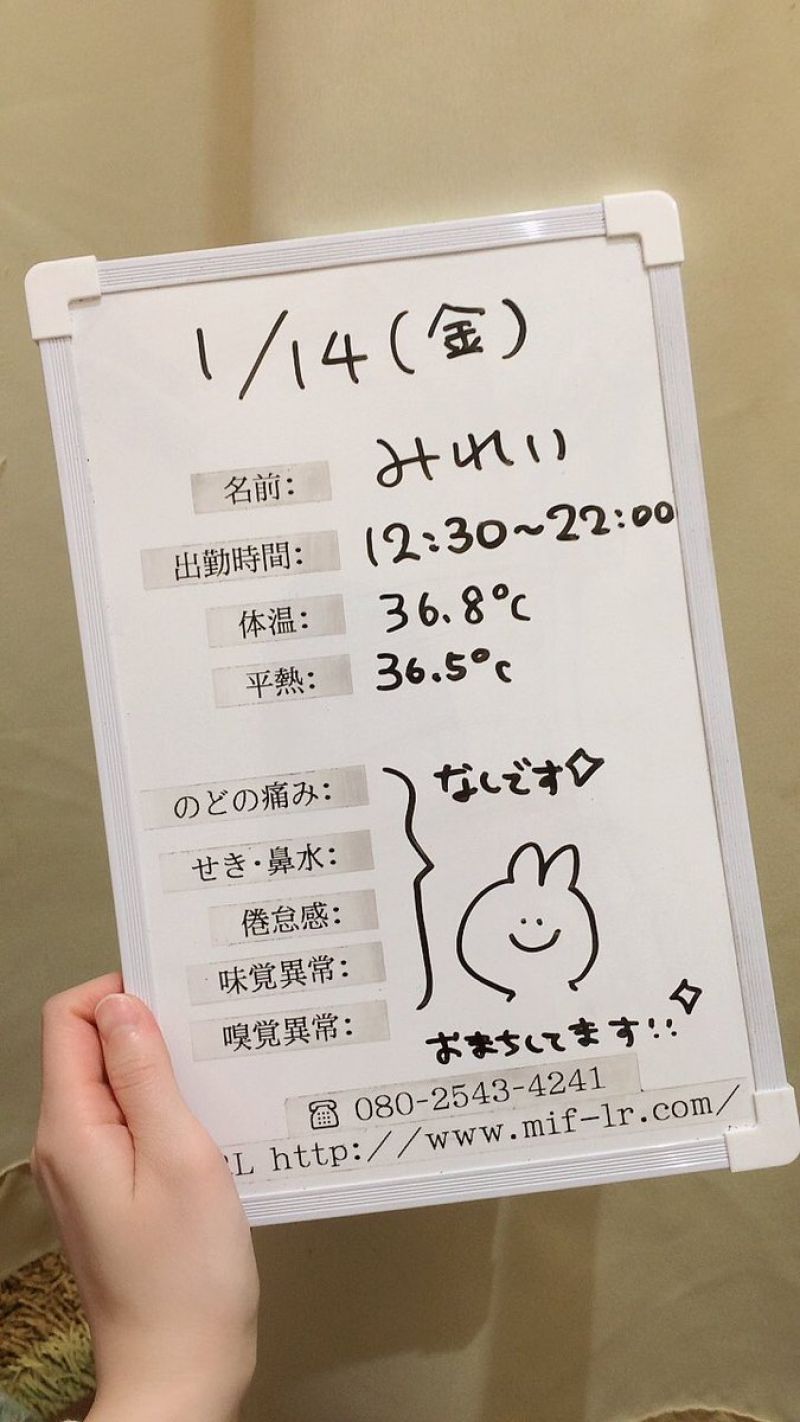 1/14(金)
名前: みれい
出勤時間: 12:30~22:00
体温: 36.8℃
平熱: 36.5℃
のどの痛み:
なしです
せき・鼻水:
倦怠感:
味覚異常:
嗅覚異常:
おまちしてます!!
☎ 080-2543-4241
RL http://www.mif-lr.com/